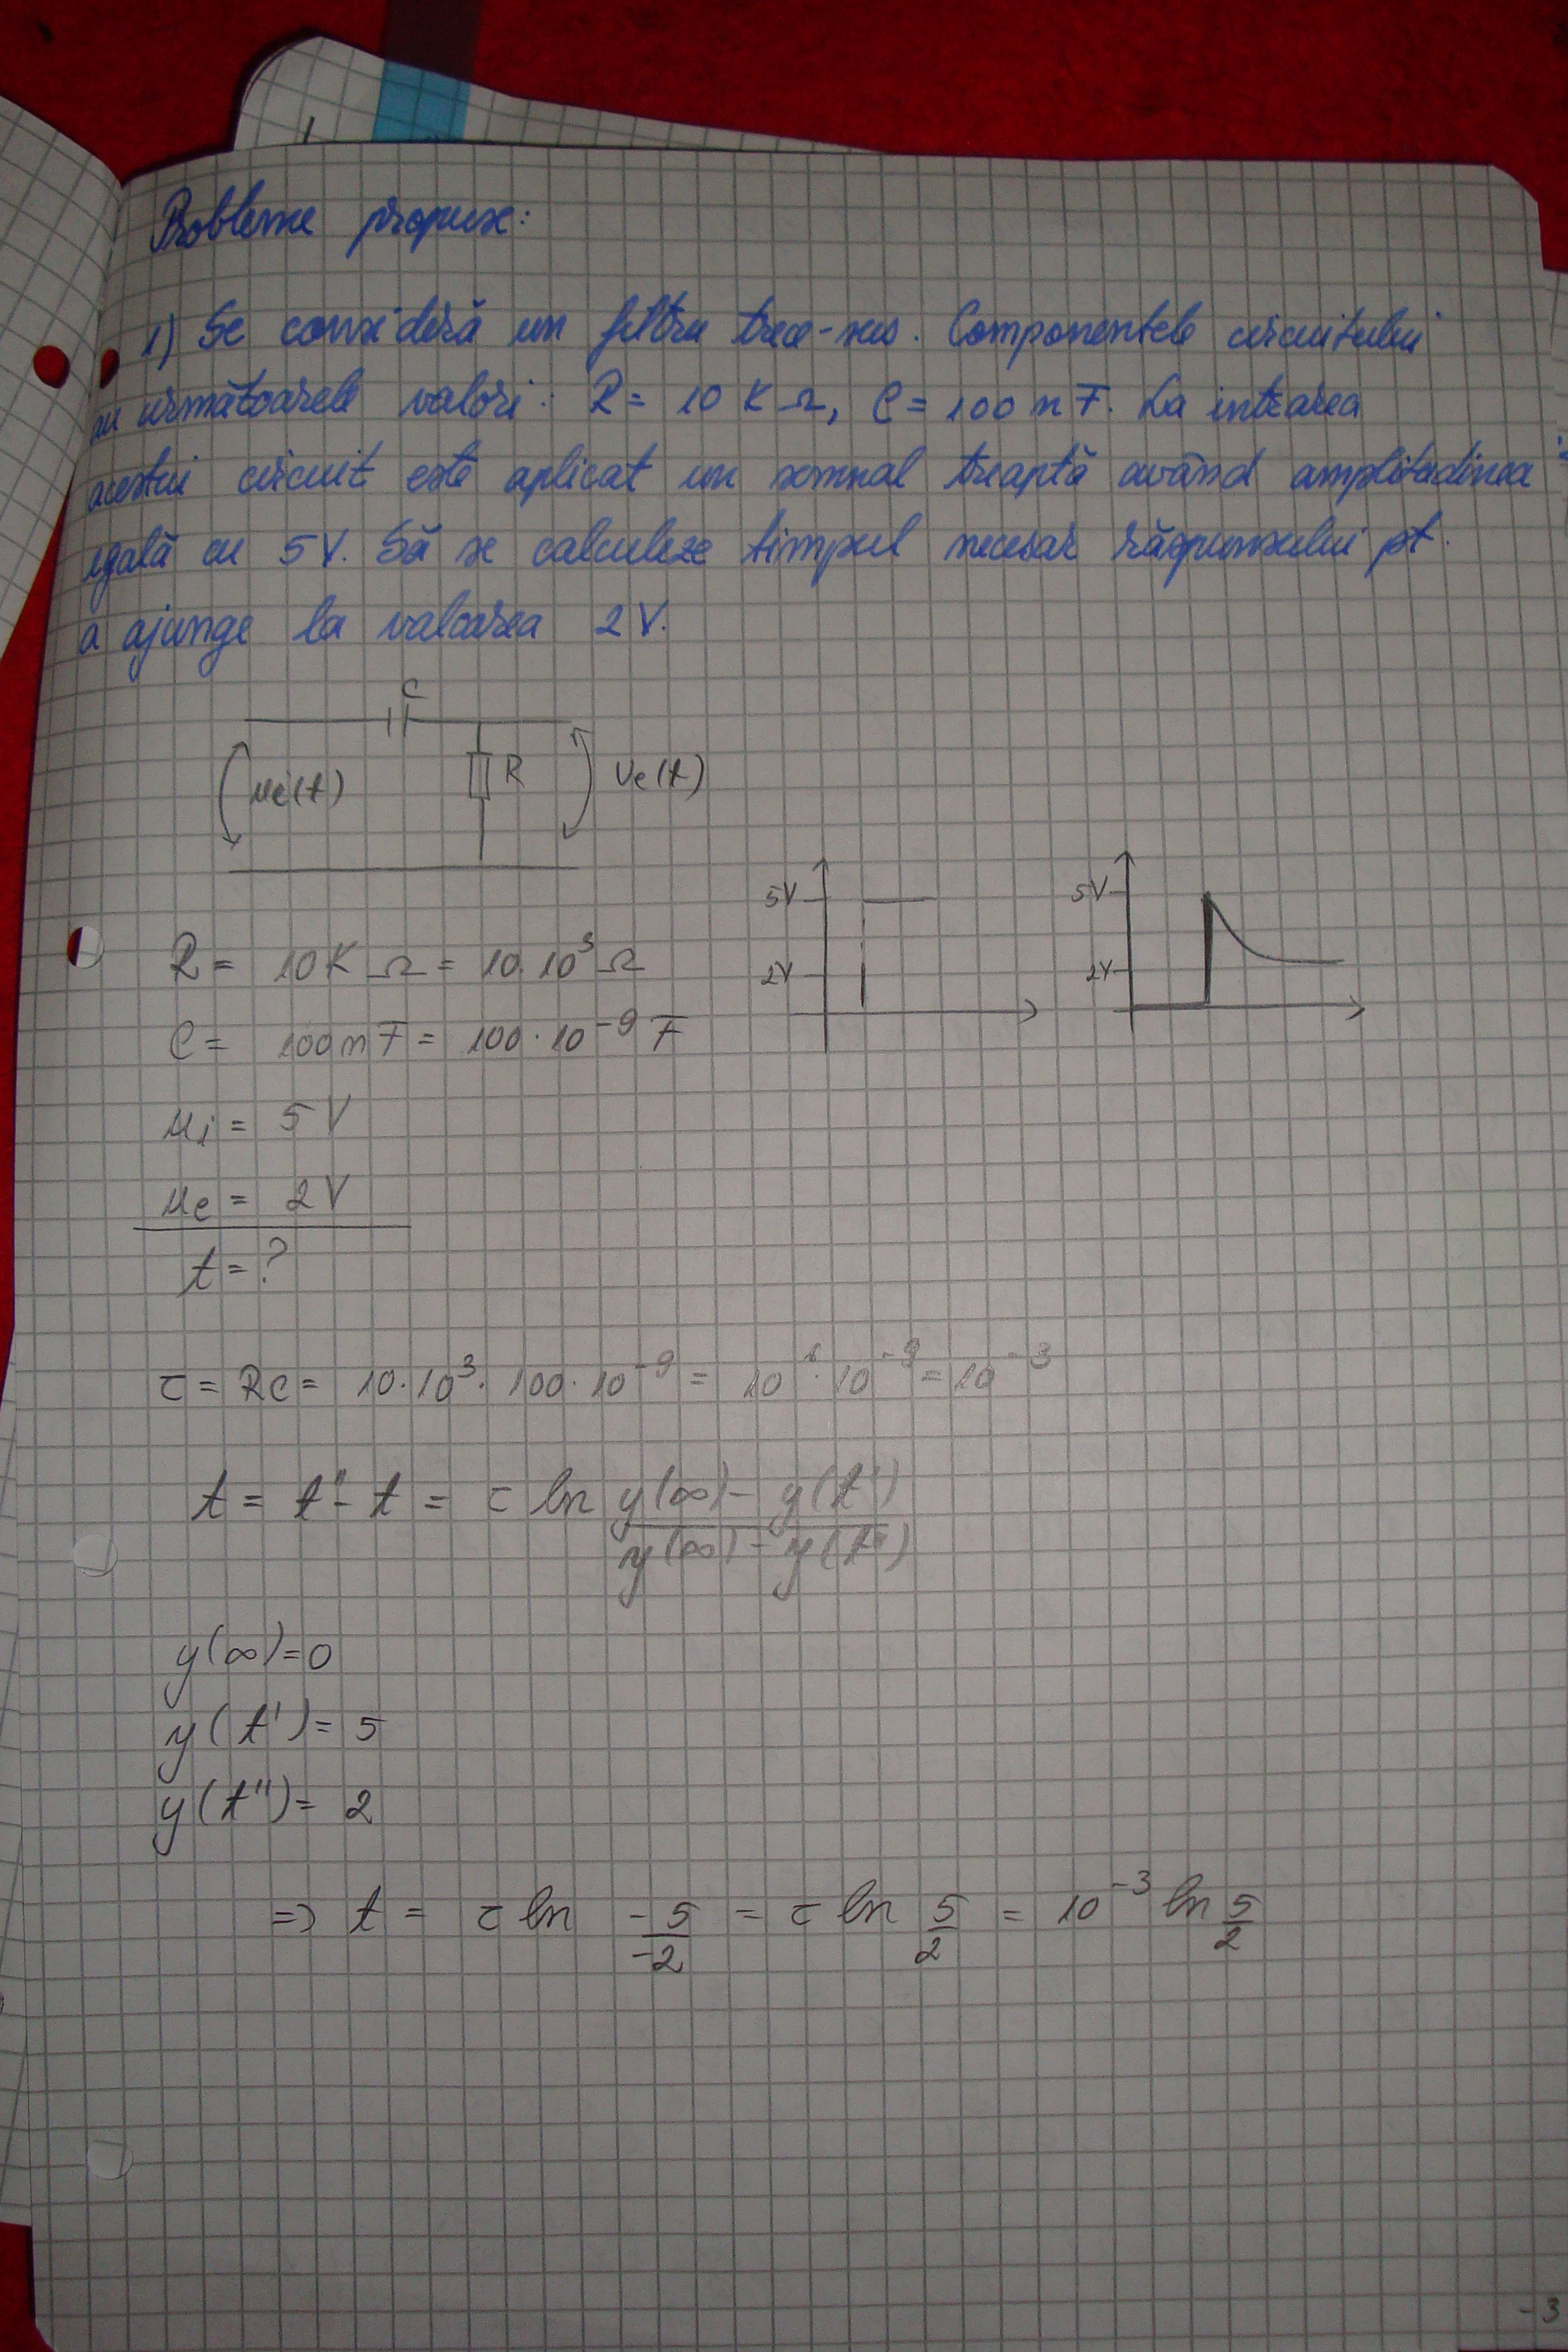 Probleme propuse:
1) Se consideră un filtru trece-sus. Componentele circuitului
au următoarele valori: R = 10 KΩ, C = 100 nF. La intrarea
acestui circuit este aplicat un semnal treaptă având amplitudinea
egală cu 5V. Să se calculeze timpul necesar răspunsului pt.
a ajunge la valoarea 2V.
C
ui(t)
R
Ue(t)
5V
2V
5V
2V
R = 10KΩ = 10·10³Ω
C = 100nF = 100·10⁻⁹ F
ui = 5V
ue = 2V
t = ?
τ = RC = 10·10³·100·10⁻⁹ = 10⁶·10⁻⁹ = 10⁻³
t = t" - t = τ ln (y(∞) - y(t'))/(y(∞) - y(t"))
y(∞) = 0
y(t') = 5
y(t") = 2
=> t = τ ln -5/-2 = τ ln 5/2 = 10⁻³ ln 5/2
-3